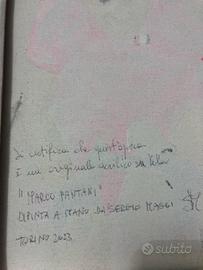 Si certifica che quest'opera
è un originale acrilico su tela
"MARCO PANTANI"
DIPINTA A MANO DA SERGIO MAGGI
TORINO 2023
subito